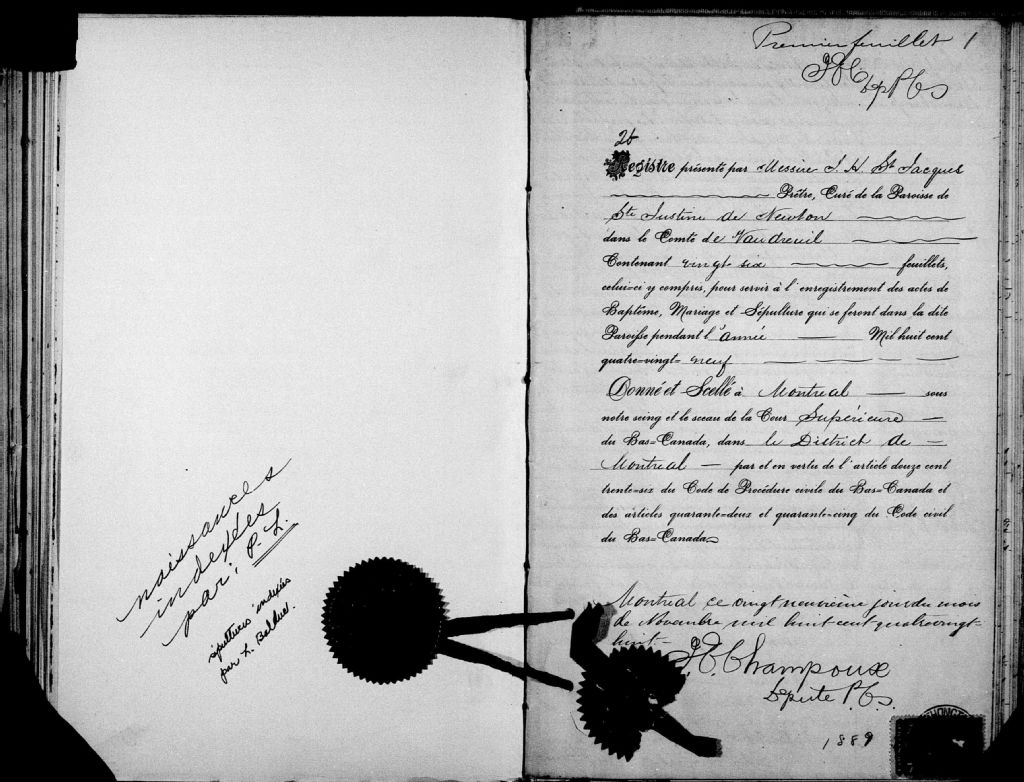 naissances
indexées
par: P. L.
sépultures indexées
par L. Belduc.
Premier feuillet 1
Dep P.C.S.
26
Registre présenté par Messire J. H. St Jacques
Prêtre, Curé de la Paroisse de
Ste Justine de Newton
dans le Comté de Vaudreuil
Contenant vingt six feuillets,
celui-ci y compris, pour servir à l'enregistrement des actes de
Baptême, Mariage et Sépulture qui se feront dans la dite
Paroisse pendant l'année Mil huit cent
quatre-vingt-neuf
Donné et Scellé à Montreal sous
notre seing et le sceau de la Cour Supérieure
du Bas-Canada, dans le District de
Montreal par et en vertu de l'article douze cent
trente-six du Code de Procédure civile du Bas-Canada et
des articles quarante-deux et quarante-cinq du Code civil
du Bas-Canada.
Montreal ce vingt neuvième jour du mois
de Novembre mil huit cent quatrevingt-
huit-
Champoux
Députe P.C.S.
1889